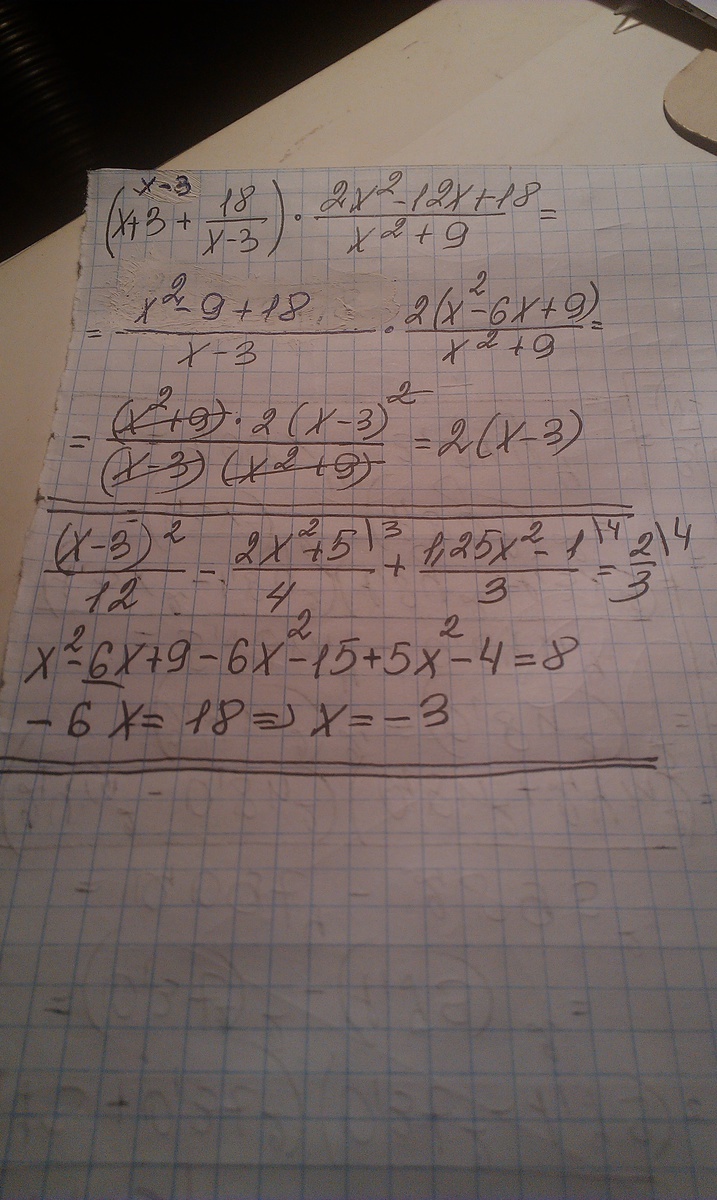 x-3
(x+3 + 18/(x-3)) · (2x²-12x+18)/(x²+9) =
= (x²-9+18)/(x-3) · 2(x²-6x+9)/(x²+9) =
= ((x²+9)·2(x-3)²)/((x-3)(x²+9)) = 2(x-3)
(x-3)²/12 - (2x²+5)/4 \3 + (1,25x²-1)/3 \4 = 2/3 \4
x²-6x+9-6x²-15+5x²-4=8
-6x=18 => x=-3